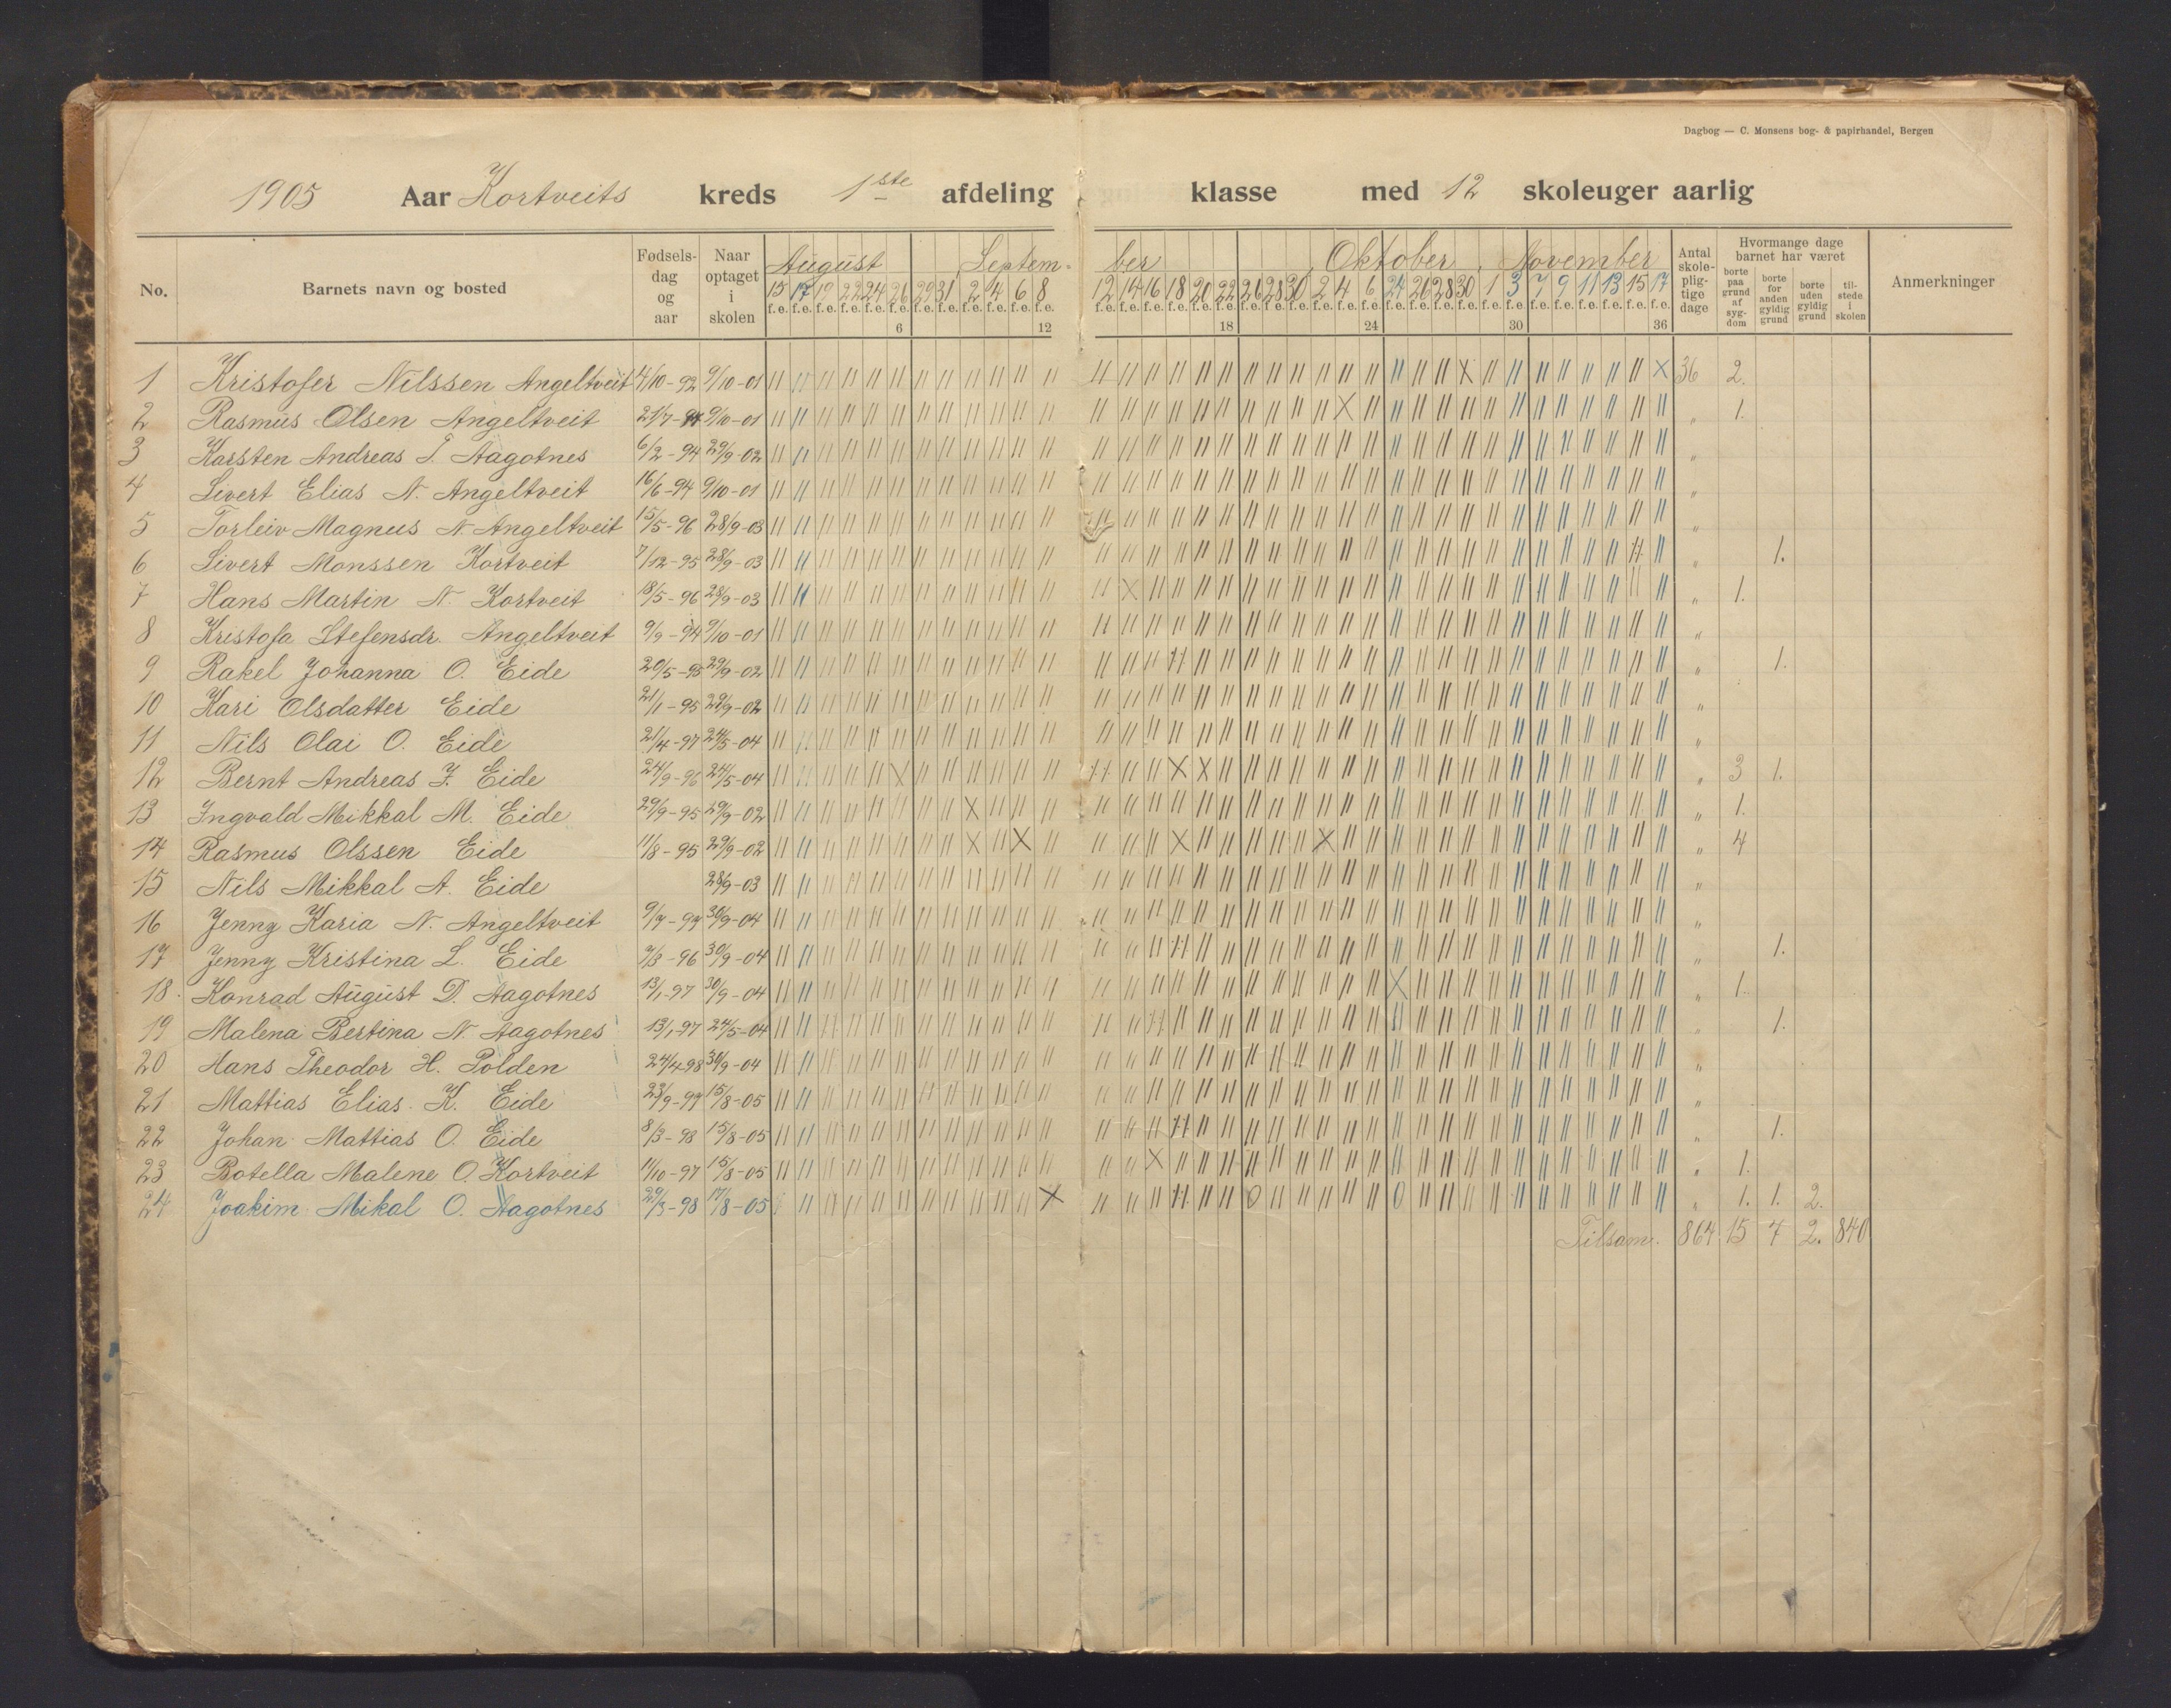 Dagbog — C. Monsens bog- & papirhandel, Bergen
1905 Aar Kortveits kreds 1ste afdeling klasse med 12 skoleuger aarlig
No. Barnets navn og bosted Fødsels-dag og aar Naar optaget i skolen August Septem-ber Oktober November Antal skole-plig-tige dage Hvormange dage barnet har været Anmerkninger
borte paa grund af syg-dom borte for anden gyldig grund borte uden gyldig grund til-stede i skolen
15 17 19 22 24 26 29 31 2 4 6 8 12 14 16 18 20 22 26 28 30 2 4 6 24 26 28 30 1 3 7 9 11 13 15 17
f.e. f.e. f.e. f.e. f.e. f.e. f.e. f.e. f.e. f.e. f.e. f.e. f.e. f.e. f.e. f.e. f.e. f.e. f.e. f.e. f.e. f.e. f.e. f.e. f.e. f.e. f.e. f.e. f.e. f.e. f.e. f.e. f.e. f.e. f.e. f.e.
6 12 18 24 30 36
1 Kristofer Nilssen Angeltveit 4/10-92 9/10-01 36 2.
2 Rasmus Olsen Angeltveit 21/7-94 9/10-01 " 1.
3 Karsten Andreas T. Aagotnes 6/2-94 29/9-02 "
4 Sivert Elias N. Angeltveit 16/6-94 9/10-01 "
5 Torleiv Magnus N. Angeltveit 15/5-96 28/9-03 "
6 Sivert Monssen Kortveit 7/12-95 28/9-03 " 1.
7 Hans Martin N. Kortveit 18/5-96 28/9-03 " 1.
8 Kristofa Stefensdr. Angeltveit 9/9-94 9/10-01 "
9 Rakel Johanna O. Eide 20/5-95 29/9-02 " 1.
10 Kari Olsdatter Eide 21/1-95 29/9-02 "
11 Nils Olai O. Eide 21/4-97 24/5-04 "
12 Bernt Andreas J. Eide 24/9-96 24/5-04 " 3 1.
13 Ingvald Mikkal M. Eide 29/9-95 29/9-02 " 1.
14 Rasmus Olssen Eide 11/8-95 29/9-02 " 4
15 Nils Mikkal A. Eide 28/9-03 "
16 Jenny Karia N. Angeltveit 9/7-97 30/9-04 "
17 Jenny Kristina L. Eide 7/3-96 30/9-04 " 1.
18 Konrad August D. Aagotnes 13/1-97 30/9-04 " 1.
19 Malena Bertina N. Aagotnes 13/1-97 24/5-04 " 1.
20 Hans Theodor H. Polden 24/4-98 30/9-04 "
21 Mattias Elias K. Eide 23/9-97 15/8-05 "
22 Johan Mattias O. Eide 8/3-98 15/8-05 " 1.
23 Botella Malene O. Kortveit 11/10-97 15/8-05 " 1.
24 Joakim Mikal O. Aagotnes 29/3-98 17/8-05 " 1. 1. 2.
Tilsam. 864 15 7 2. 840